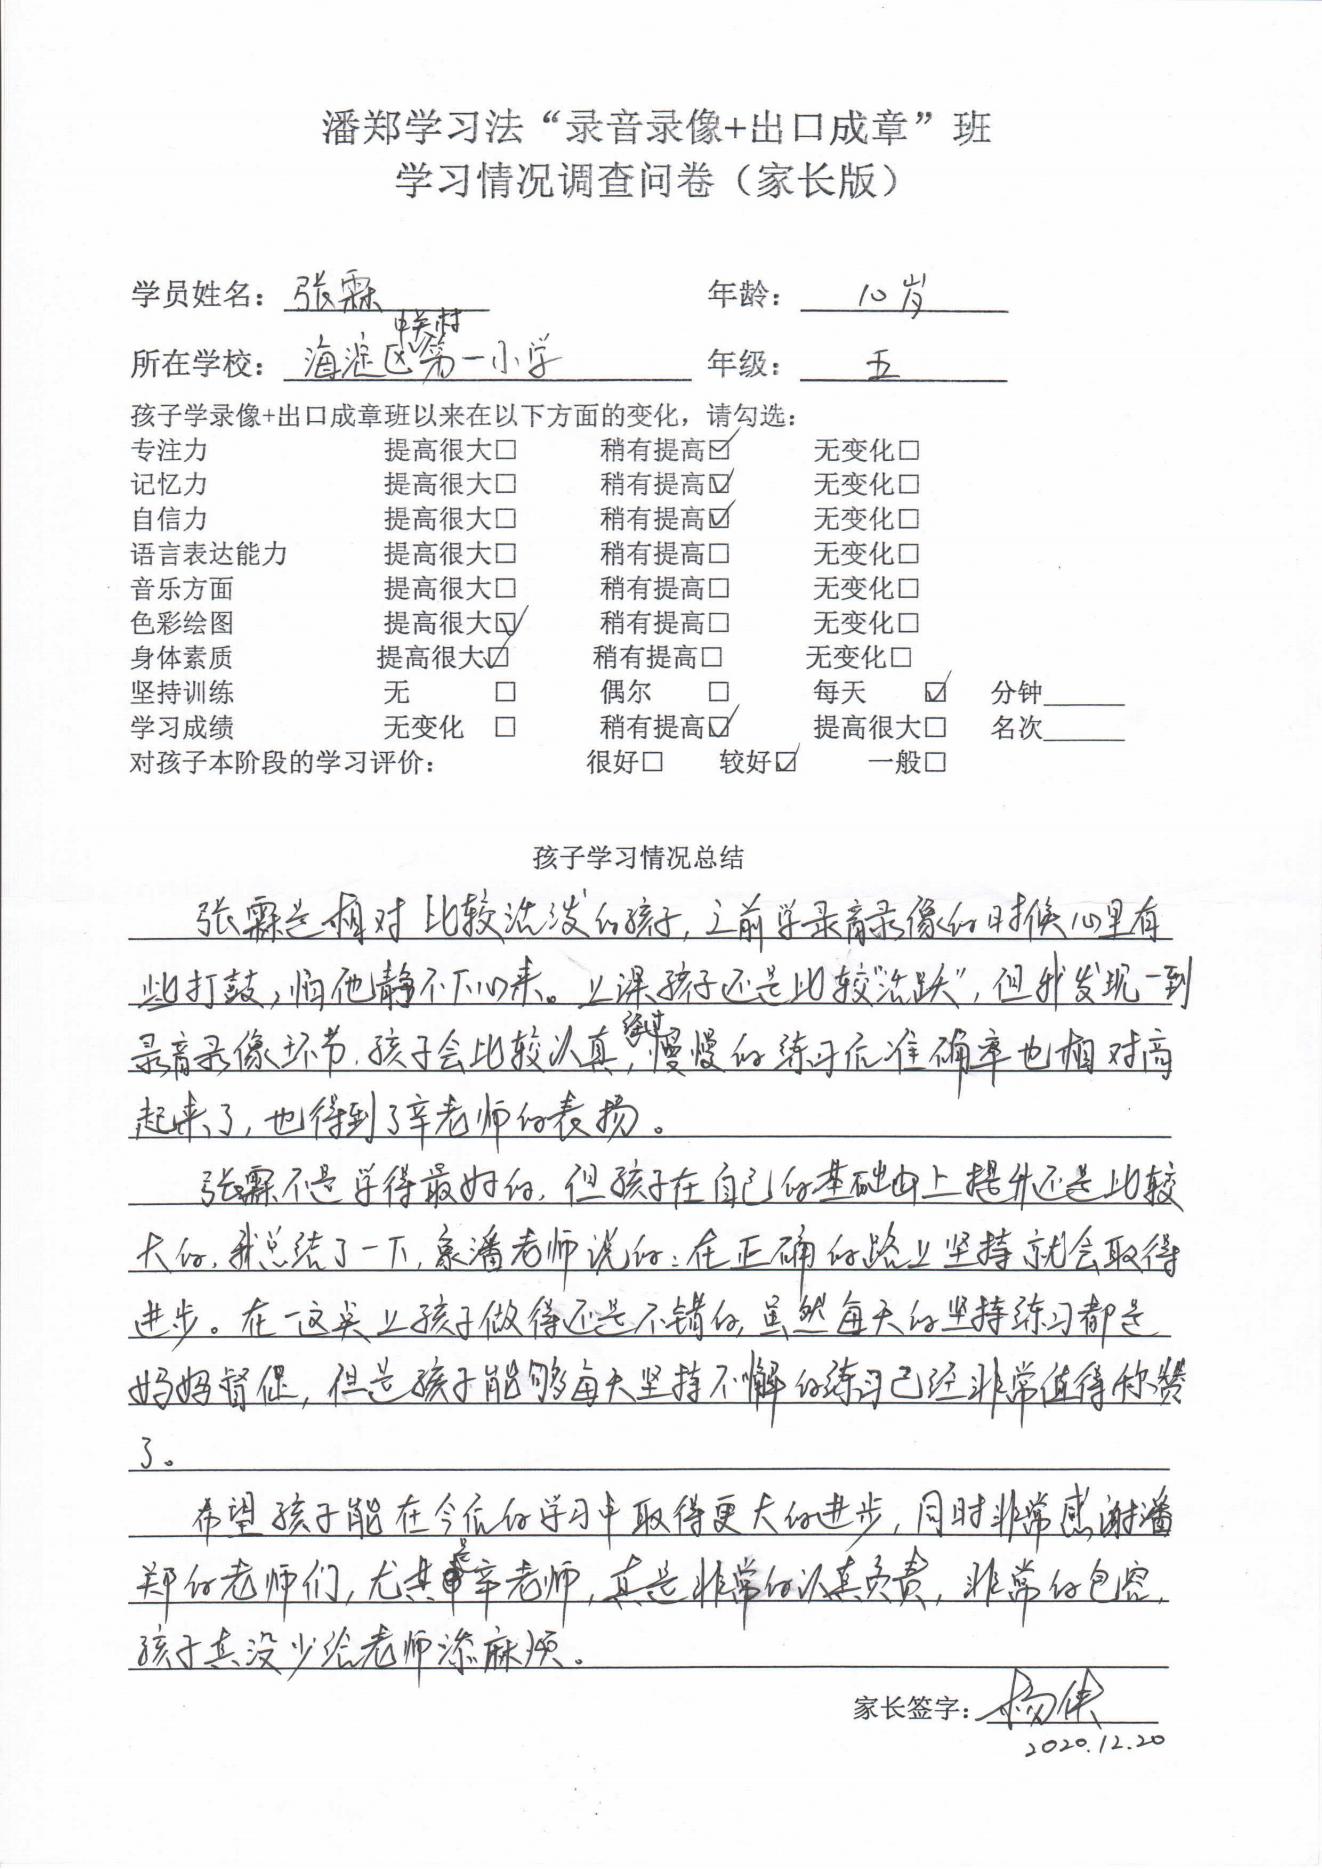 潘郑学习法“录音录像+出口成章”班
学习情况调查问卷（家长版）
学员姓名：张霖 年龄：10岁
所在学校：海淀区中关村第一小学 年级：五
孩子学录像+出口成章班以来在以下方面的变化，请勾选：
专注力 提高很大□ 稍有提高☑ 无变化□
记忆力 提高很大□ 稍有提高☑ 无变化□
自信力 提高很大□ 稍有提高☑ 无变化□
语言表达能力 提高很大□ 稍有提高□ 无变化□
音乐方面 提高很大□ 稍有提高□ 无变化□
色彩绘图 提高很大☑ 稍有提高□ 无变化□
身体素质 提高很大☑ 稍有提高□ 无变化□
坚持训练 无 □ 偶尔 □ 每天 ☑ 分钟______
学习成绩 无变化 □ 稍有提高☑ 提高很大□ 名次______
对孩子本阶段的学习评价： 很好□ 较好☑ 一般□
孩子学习情况总结
张霖是相对比较活泼的孩子，之前学录音录像的时候心里有
些打鼓，怕他静不下心来。上课孩子还是比较“活跃”，但我发现一到
录音录像环节，孩子会比较认真，经过慢慢的练习后准确率也相对高
起来了，也得到了辛老师的表扬。
张霖不是学得最好的，但孩子在自己的基础上提升还是比较
大的，我总结了一下，象潘老师说的：在正确的路上坚持就会取得
进步。在这点上孩子做得还是不错的，虽然每天的坚持练习都是
妈妈督促，但是孩子能够每天坚持不懈的练习已经非常值得称赞
了。
希望孩子能在今后的学习中取得更大的进步，同时非常感谢潘
郑的老师们，尤其是辛老师，真是非常的认真负责，非常的包容，
孩子真没少给老师添麻烦。
家长签字：杨侠
2020.12.20